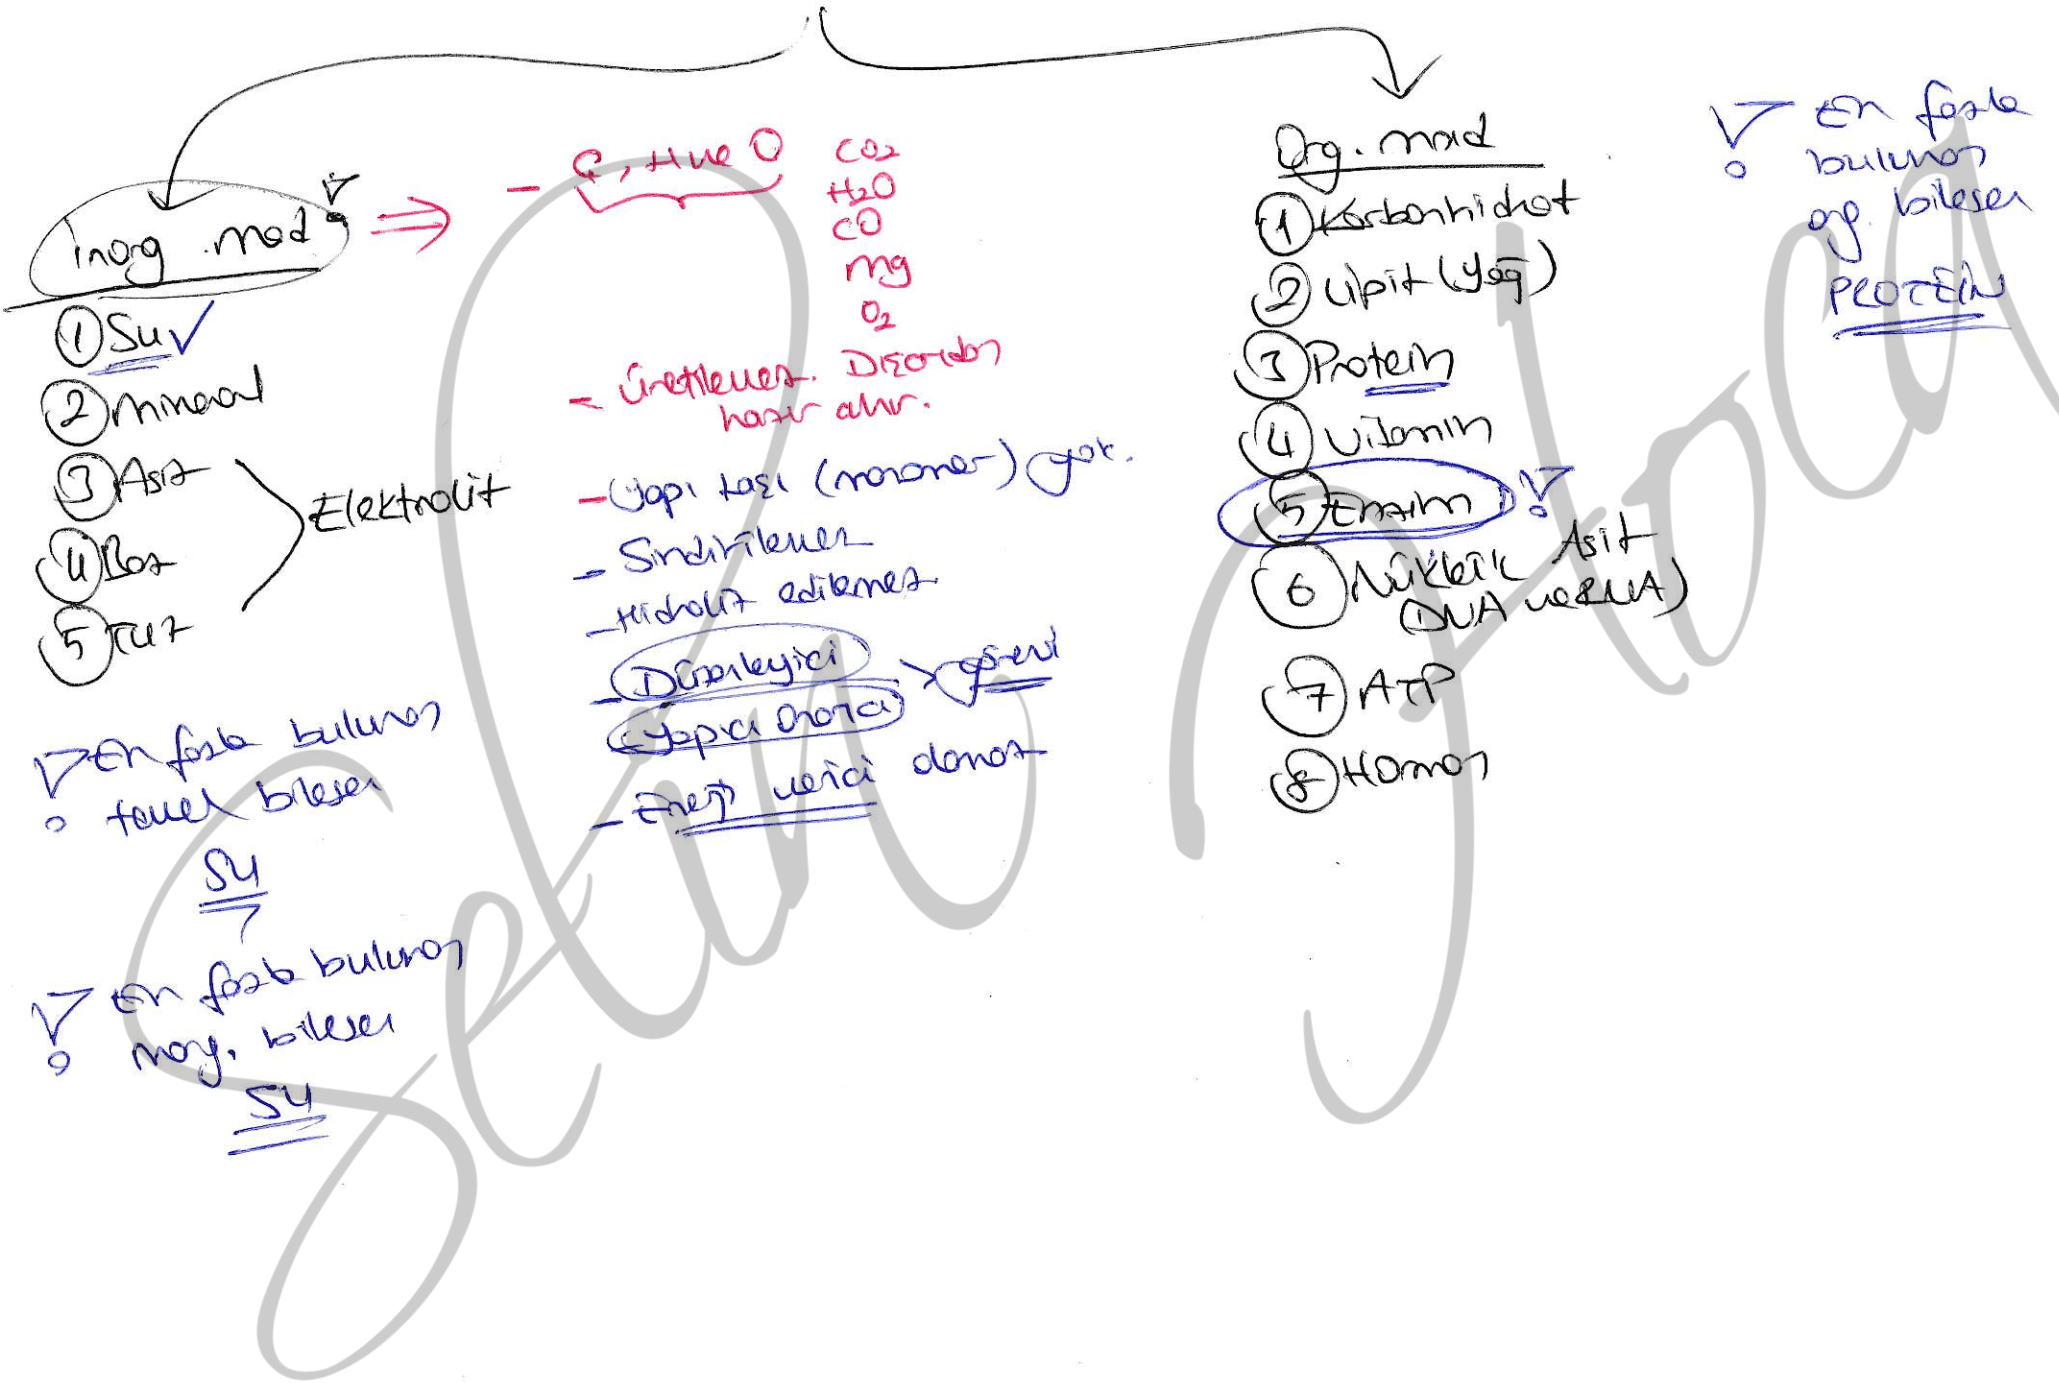 inorg. mad
① Su
② mineral
③ Asit
④ Baz
⑤ Tuz
Elektrolit
En fazla bulunan
temel bileşen
Su
En fazla bulunan
inorg. bileşen
Su
- C, H ve O
CO₂
H₂O
CO
mg
O₂
- Üretilemez. Dışarıdan
hazır alınır.
- Yapı taşı (monomer) yok.
- Sindirilemez
- Hidroliz edilemez
- Düzenleyici
Yapıcı Onarıcı
görevi
- Enerji verici olamaz
Org. mad
① Karbonhidrat
② Lipit (Yağ)
③ Protein
④ Vitamin
⑤ Enzim
⑥ Nükleik Asit
(DNA ve RNA)
⑦ ATP
⑧ Hormon
En fazla
bulunan
org. bileşen
PROTEİN
Selin Hoca